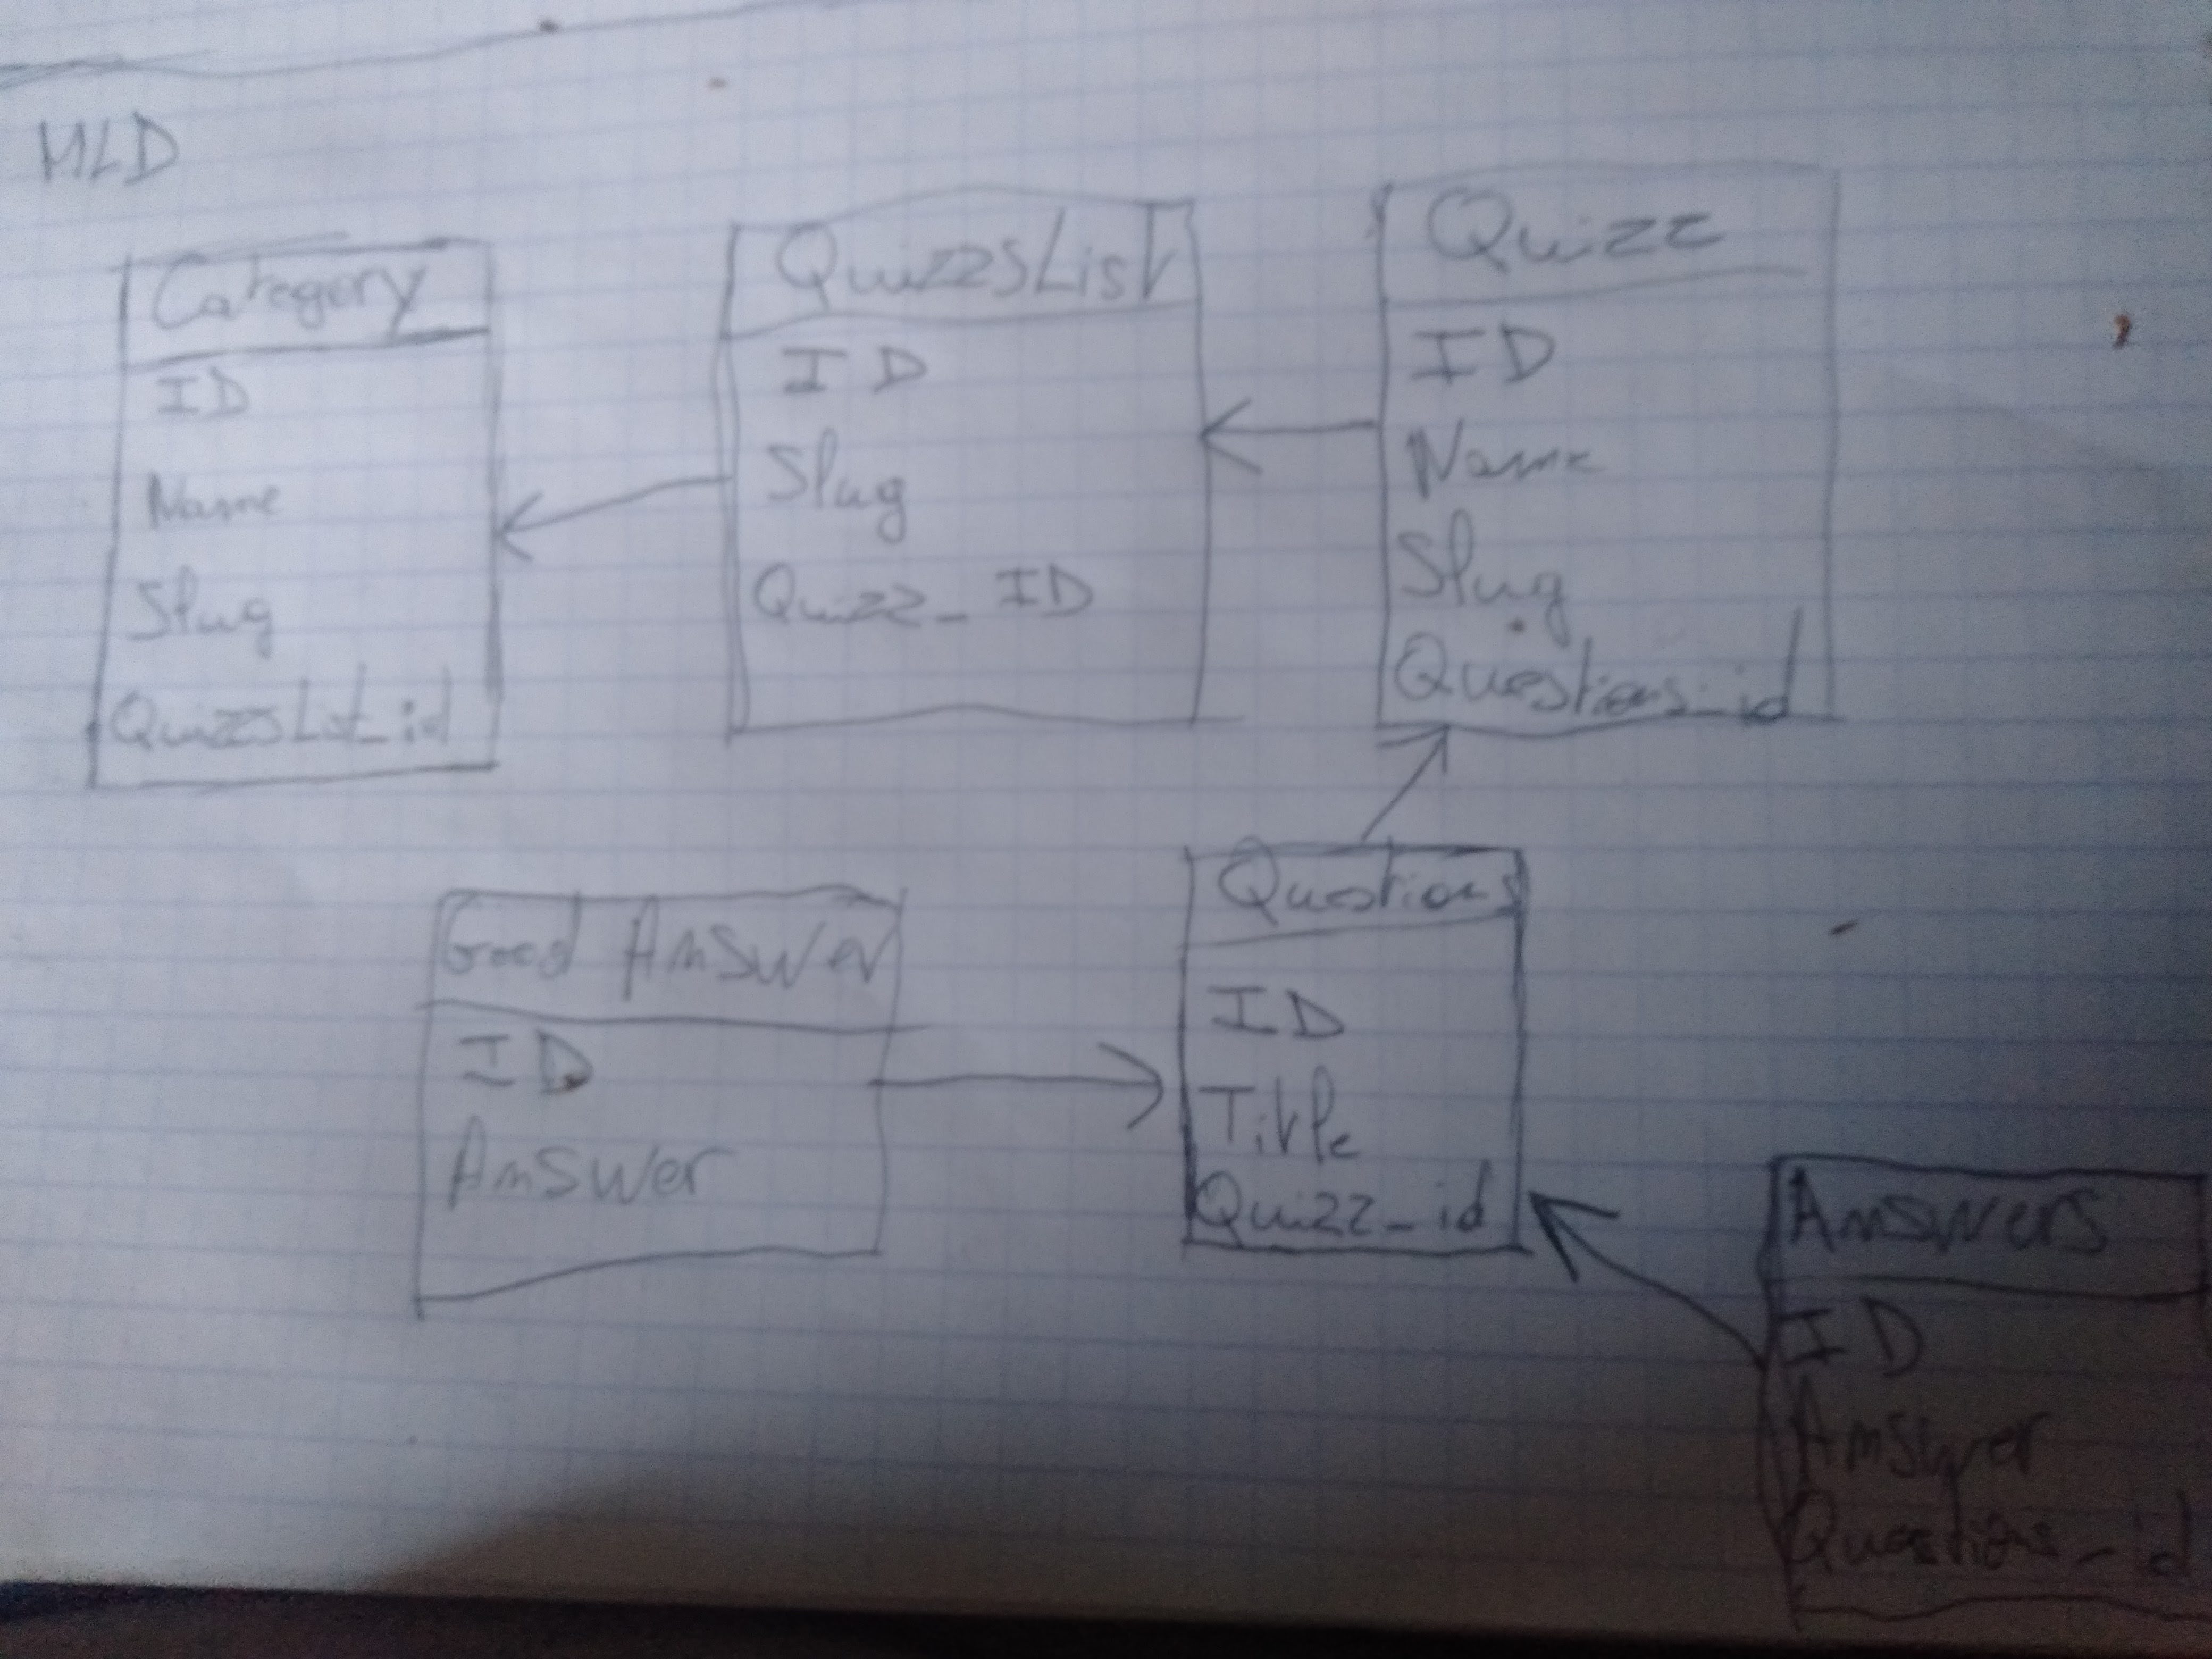 MLD
Category
ID
Name
Slug
QuizzsList_id
QuizzsList
ID
Slug
Quizz_ID
Quizz
ID
Name
Slug
Questions_id
Good Answer
ID
Answer
Questions
ID
Title
Quizz_id
Answers
ID
Answer
Questions_id